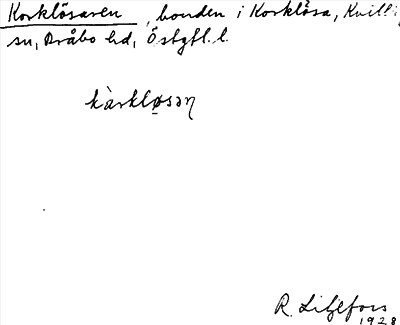 Korklösaren, bonden i Korklösa, Kvilli
sn, Bråbo hd, Östgfl. l.
kàrkløsaṇ
R. Liljefors
1928